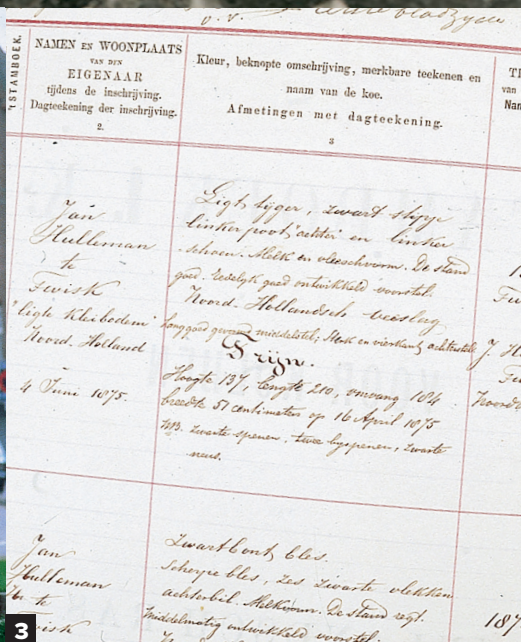 o. s.
'T STAMBOEK.
NAMEN EN WOONPLAATS
VAN DEN
EIGENAAR
tijdens de inschrijving.
Dagteekening der inschrijving.
2.
Kleur, beknopte omschrijving, merkbare teekenen en
naam van de koe.
Afmetingen met dagteekening.
3
van
Nan
Jan
Hulleman
te
Twisk
"ligte kleibodem"
Noord. Holland
4 Juni 1875.
Ligt tijger, zwart stipje
linkerpoot "achter" en linker
schoen. Melk en vleeschvorm. De stand
goed. Redelijk goed ontwikkeld voorstel.
Noord-Hollandsch veeslag
middelstel; Sterk en vierkant achterstel
Trijn.
Hoogte 137, lengte 210, omvang 184
breedte 51 centimeters op 16 April 1875
NB. zwarte spenen, twee bijspenen, zwarte
neus.
J. H
Noord
Jan
Hulleman
te
Twisk
Zwartbont, bles.
Scherpe bles, zes zwarte vlekken
achterbil. Melkvorm. De stand regt.
Middelmatig ontwikkeld voorstel.
187
3